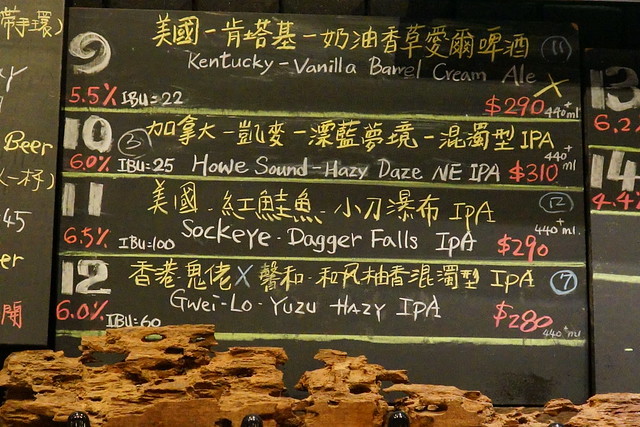 帶手環)
Beer
(一杯)
45
er
開
9
美國-肯塔基-奶油香草愛爾啤酒 (11)
Kentucky-Vanilla Barrel Cream Ale X
5.5% IBU=22 $290 440+ml
10 (3) 加拿大-凱麥-漂藍夢境-混濁型IPA
6.0% IBU=25 Howe Sound-Hazy Daze NE IPA $310 440+ml
11 美國.紅鮭魚.小刀瀑布 IPA (12)
6.5% IBU=100 Sockeye.Dagger Falls IPA $290 440+ml.
12 香港鬼佬X馨和.和风柚香混濁型 IPA (7)
6.0% IBU=60 Gwei-Lo-Yuzu HAZY IPA $280 440+ml
13
6.2
14
4.4